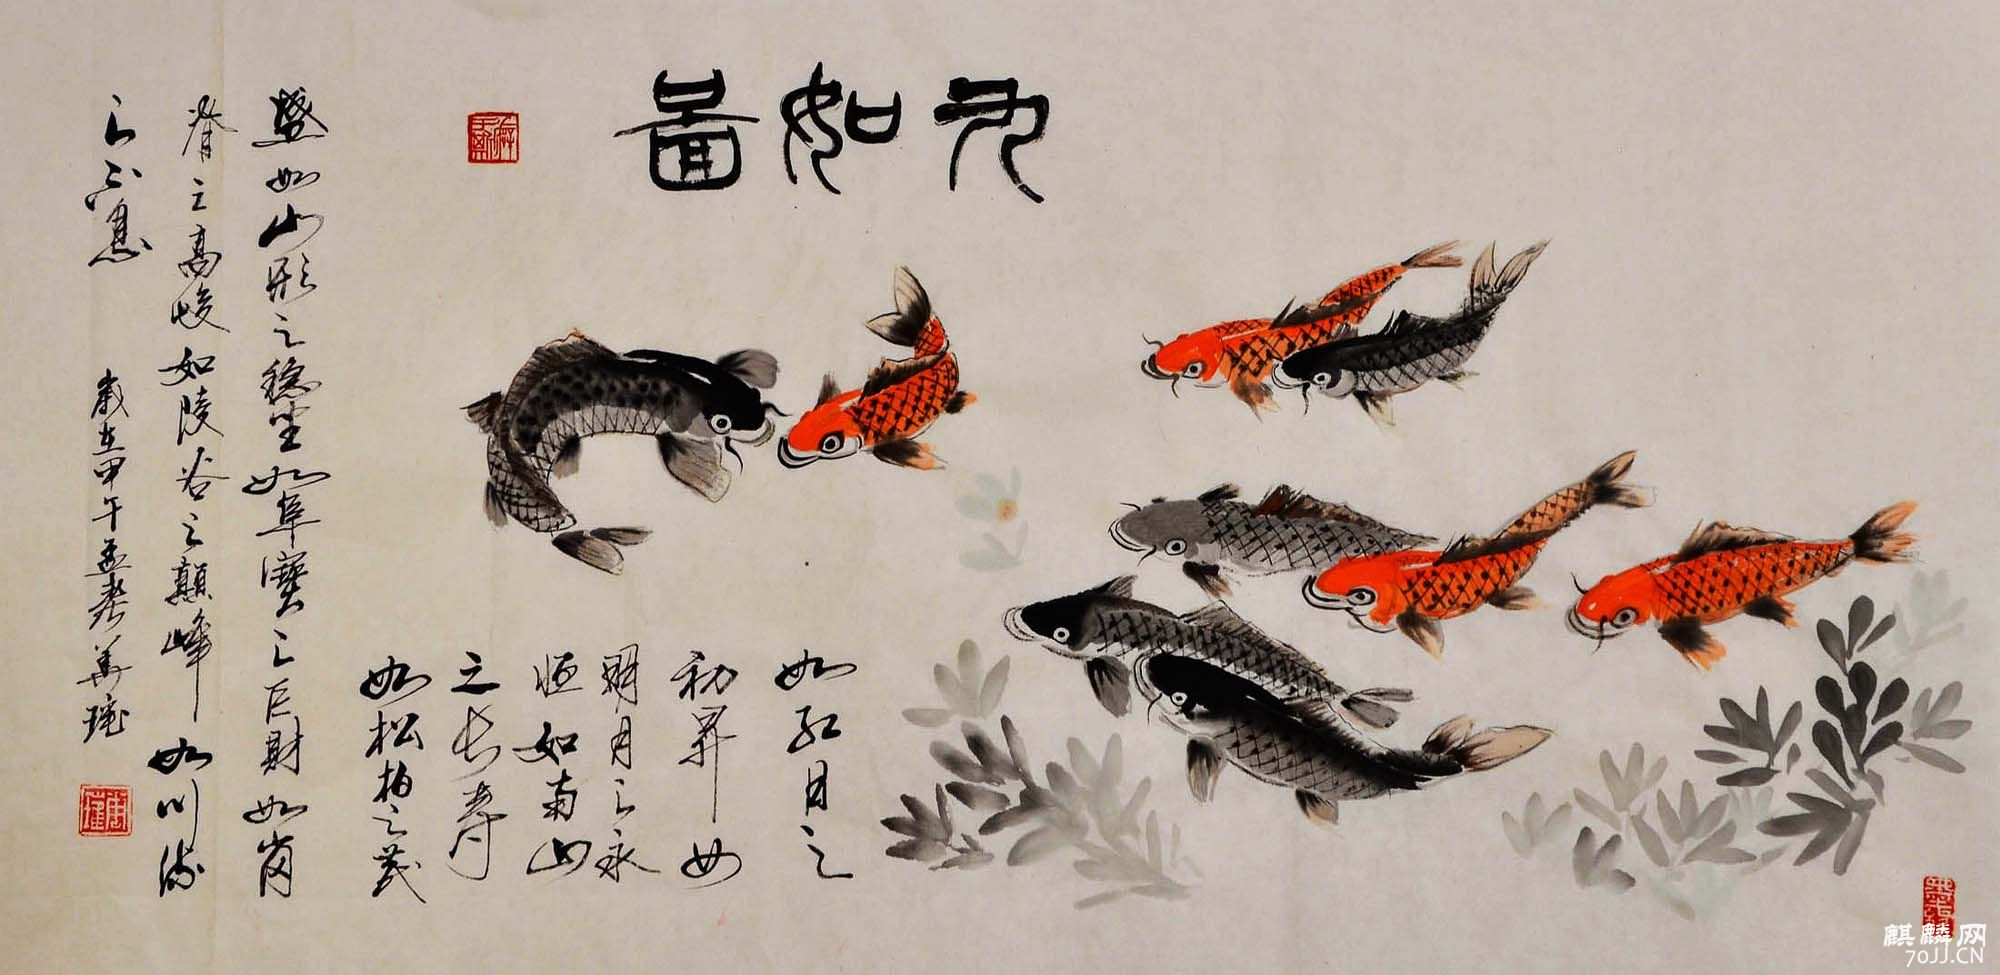 九如图
如红日之
初昇如
明月之永
恒如南山
之长寿
如松柏之茂
盛如山形之稳坐如阜宝之巨财如岗
脊之高峻如陵谷之颠峰如川流
之不息
岁在甲午孟春
麒麟网
70JJ.CN